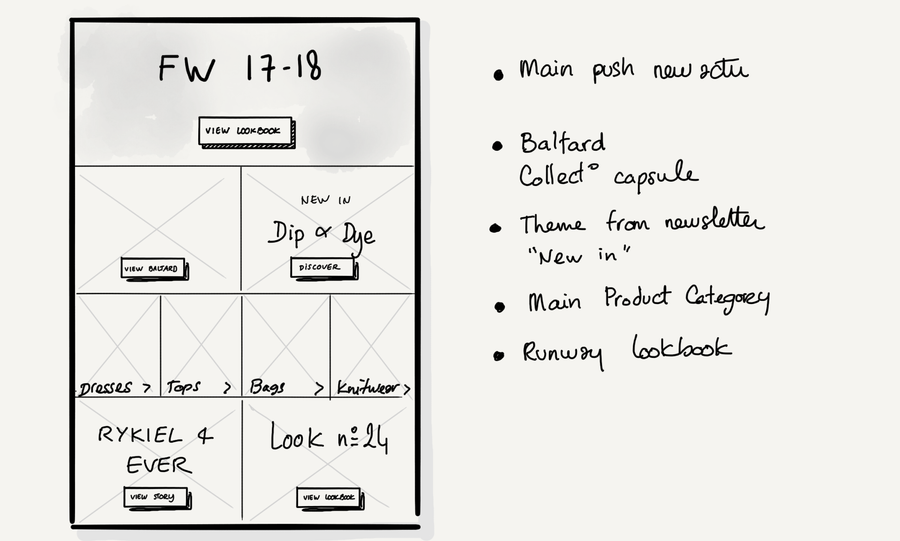 FW 17-18
VIEW LOOKBOOK
VIEW BALTARD
NEW IN
Dip & Dye
DISCOVER
Dresses >
Tops >
Bags >
Knitwear >
RYKIEL 4
EVER
VIEW STORY
Look nº24
VIEW LOOKBOOK
• Main push new actu
• Baltard
Collect° capsule
• Theme from newsletter
"New in"
• Main Product Category
• Runway lookbook